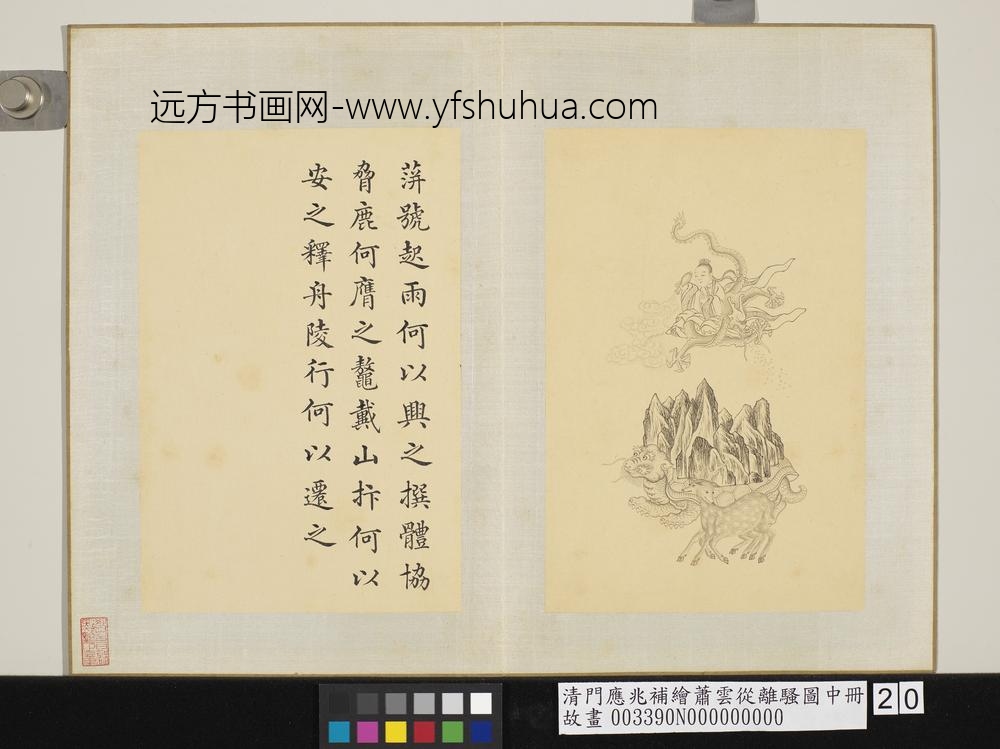 远方书画网-www.yfshuhua.com
蓱號起雨何以興之撰體協
脅鹿何膺之鼇戴山抃何以
安之釋舟陵行何以遷之
清門應兆補繪蕭雲從離騷圖中冊
故畫 003390N000000000
20